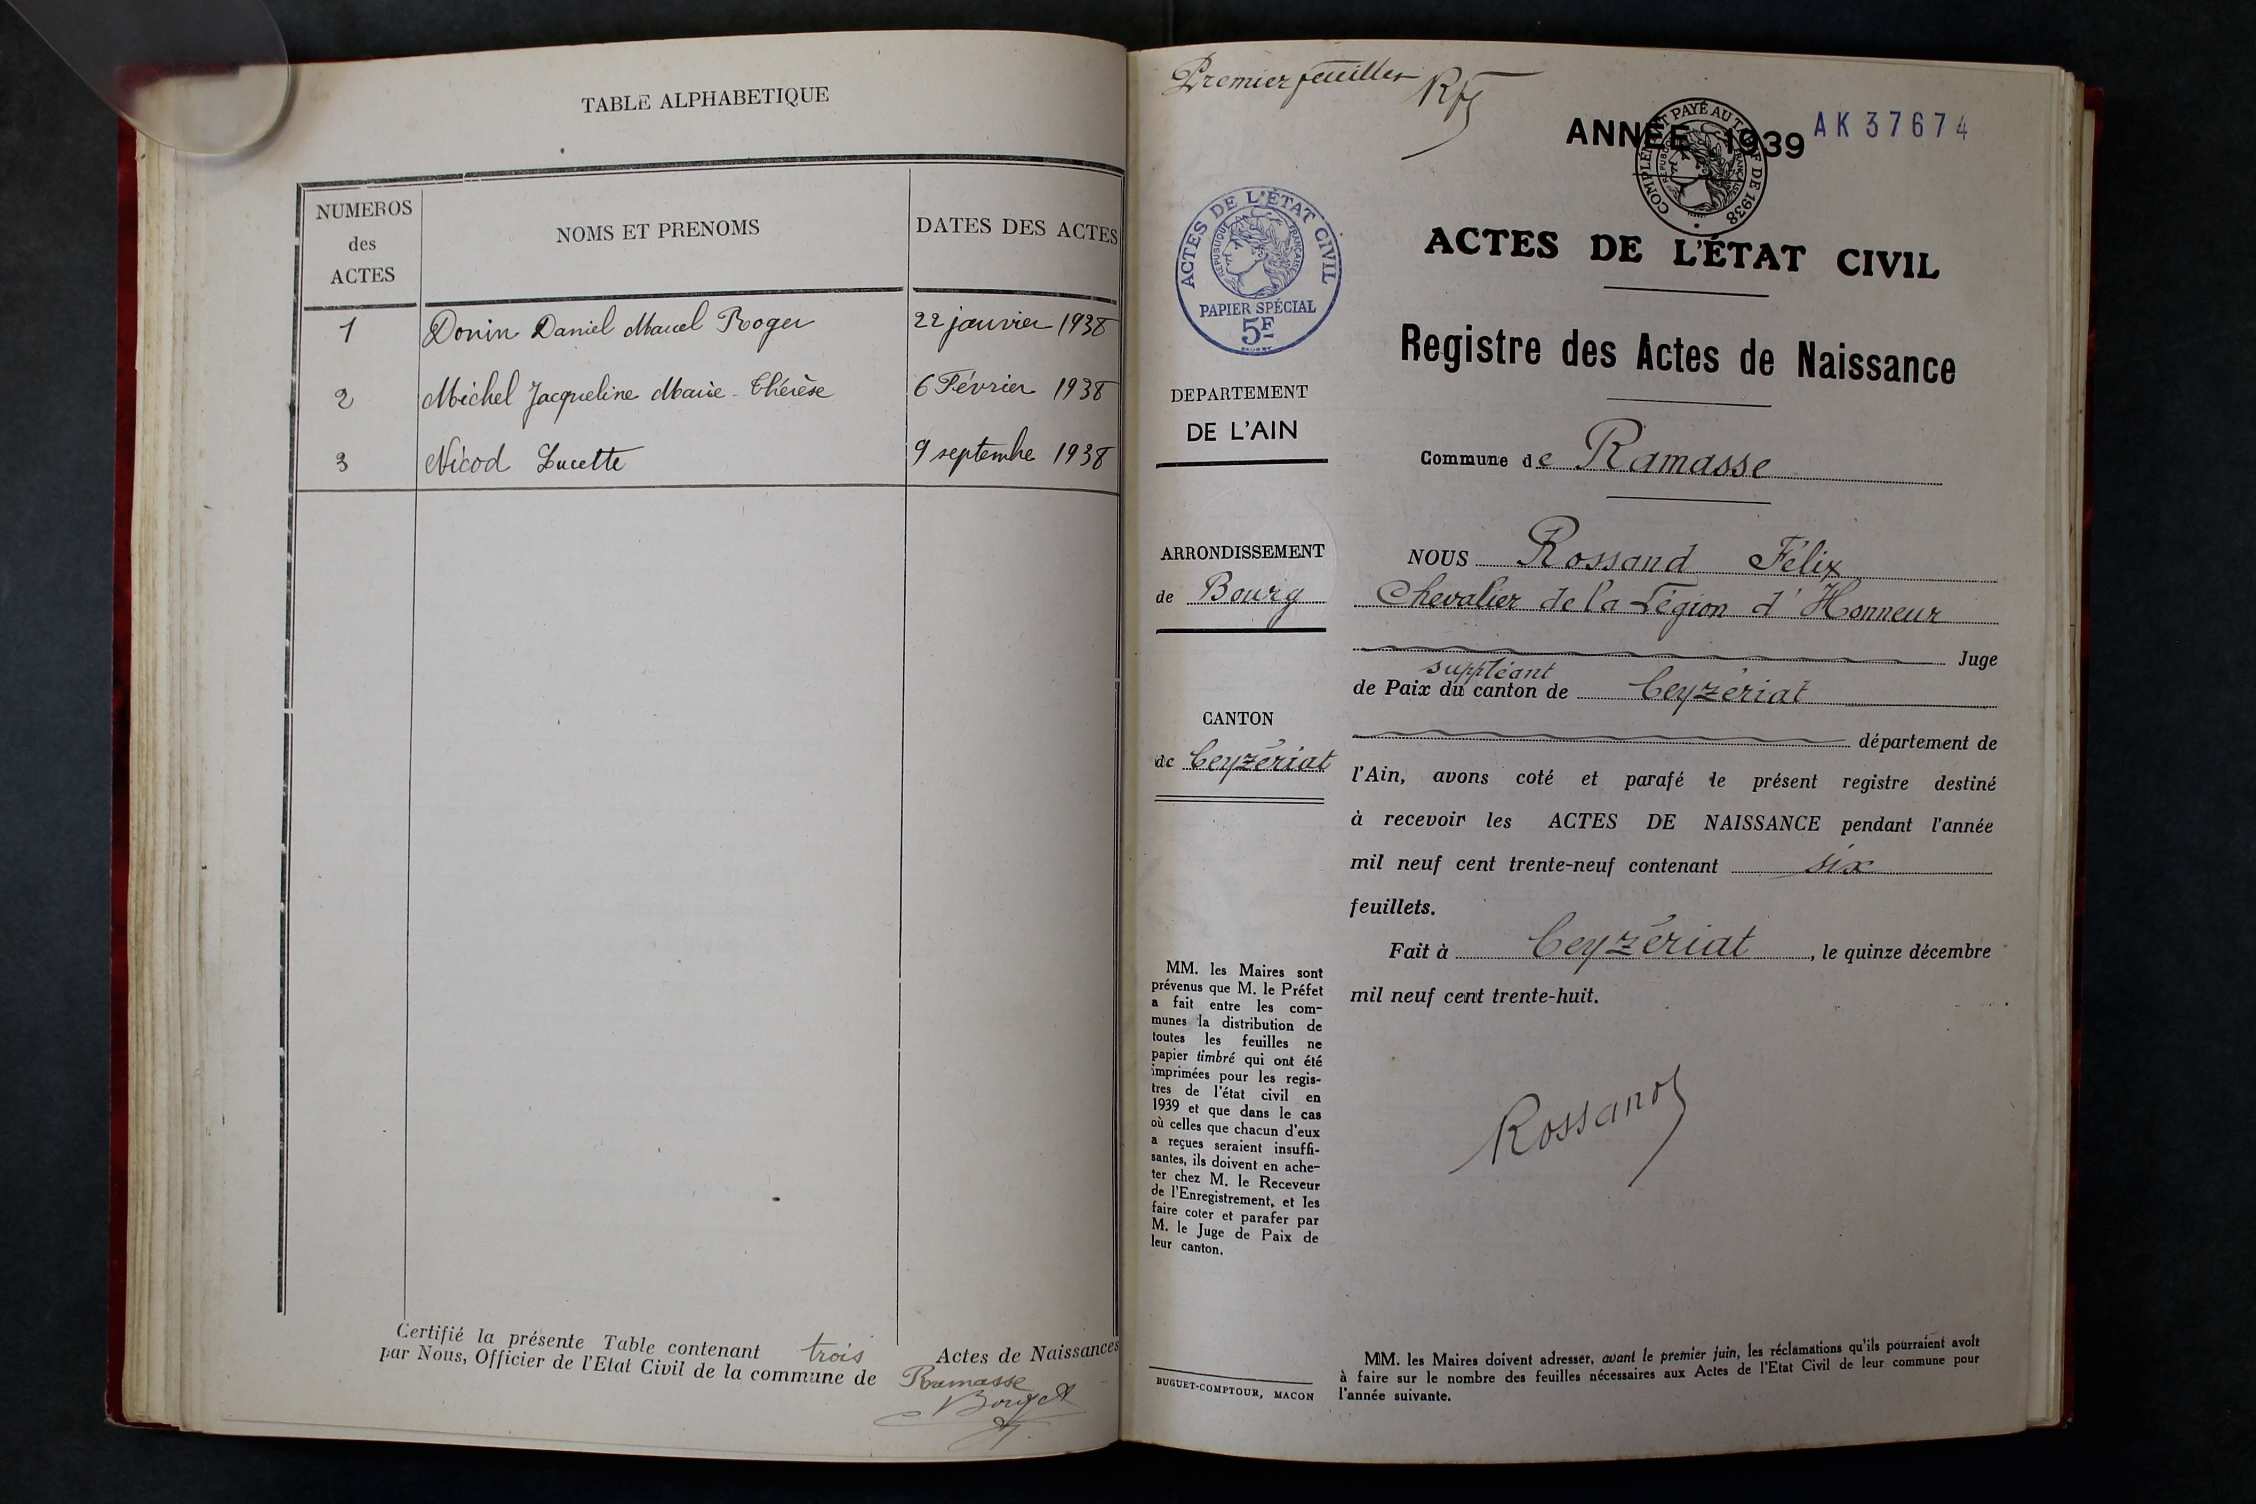 TABLE ALPHABETIQUE
NUMEROS
des
ACTES
NOMS ET PRENOMS
DATES DES ACTES
1 Donin Daniel Marcel Roger 22 janvier 1938
2 Michel Jacqueline Marie-Thérèse 6 Février 1938
3 Nicod Lucette 9 septembre 1938
Certifié la présente Table contenant trois Actes de Naissances
par Nous, Officier de l'Etat Civil de la commune de Ramasse
Premier feuillet
ANNÉE 1939
AK 37674
COMPLÉMENT PAYÉ AU TARIF DE 1938
RÉPUBLIQUE FRANÇAISE
ACTES DE L'ÉTAT CIVIL
RÉPUBLIQUE FRANÇAISE
PAPIER SPÉCIAL
5F
DEPARTEMENT
DE L'AIN
ARRONDISSEMENT
de Bourg
CANTON
de Ceyzériat
MM. les Maires sont
prévenus que M. le Préfet
a fait entre les com-
munes la distribution de
toutes les feuilles ne
papier timbré qui ont été
imprimées pour les regis-
tres de l'état civil en
1939 et que dans le cas
où celles que chacun d'eux
a reçues seraient insuffi-
santes, ils doivent en ache-
ter chez M. le Receveur
de l'Enregistrement, et les
faire coter et parafer par
M. le Juge de Paix de
leur canton.
BUGUET-COMPTOUR, MACON
ACTES DE L'ÉTAT CIVIL
Registre des Actes de Naissance
Commune de Ramasse
NOUS Rossand Félix
Chevalier de la Légion d'Honneur
Juge
suppléant
de Paix du canton de Ceyzériat
département de
l'Ain, avons coté et parafé le présent registre destiné
à recevoir les ACTES DE NAISSANCE pendant l'année
mil neuf cent trente-neuf contenant six
feuillets.
Fait à Ceyzériat, le quinze décembre
mil neuf cent trente-huit.
Rossand
MM. les Maires doivent adresser, avant le premier juin, les réclamations qu'ils pourraient avoir
à faire sur le nombre des feuilles nécessaires aux Actes de l'Etat Civil de leur commune pour
l'année suivante.